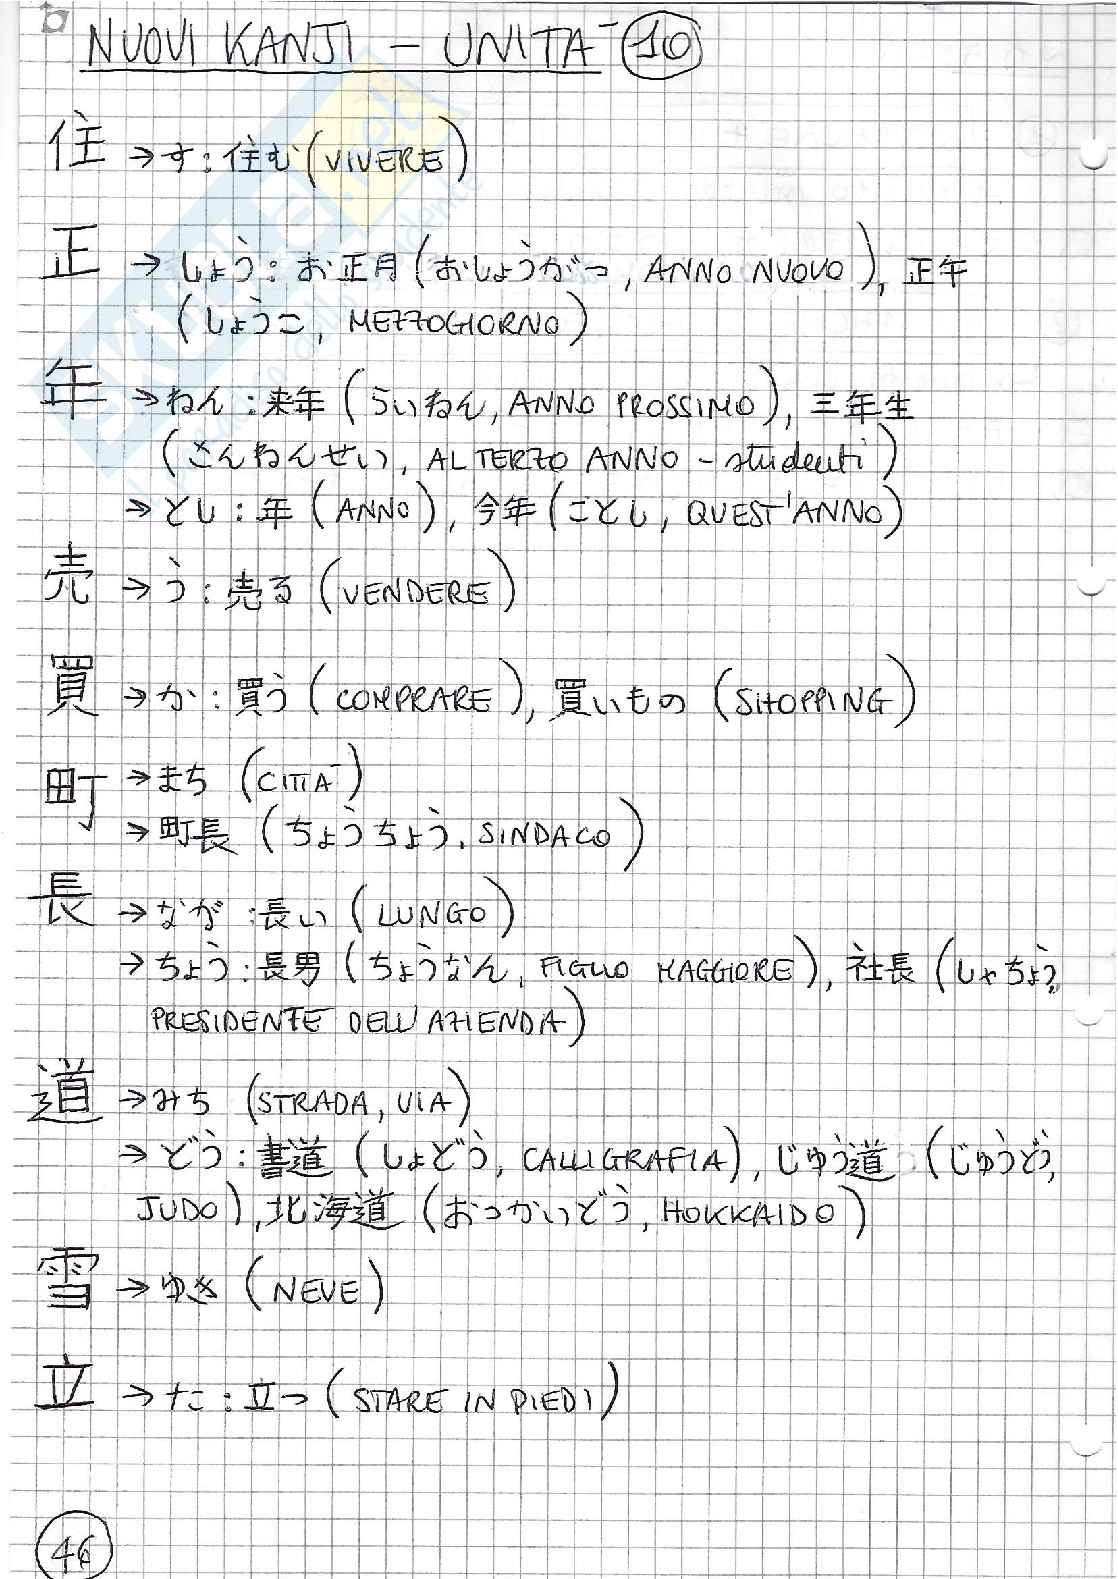 NUOVI KANJI - UNITA' 10
住 → す: 住む (VIVERE)
正 → しょう: お正月 (おしょうがつ, ANNO NUOVO), 正午
(しょうこ, MEZZOGIORNO)
年 → ねん: 来年 (らいねん, ANNO PROSSIMO), 三年生
(さんねんせい, AL TERZO ANNO - studenti)
→ とし: 年 (ANNO), 今年 (ことし, QUEST'ANNO)
売 → う: 売る (VENDERE)
買 → か: 買う (COMPRARE), 買いもの (SHOPPING)
町 → まち (CITTA')
→ 町長 (ちょうちょう, SINDACO)
長 → なが: 長い (LUNGO)
→ ちょう: 長男 (ちょうなん, FIGLIO MAGGIORE), 社長 (しゃちょう,
PRESIDENTE DELL'AZIENDA)
道 → みち (STRADA, VIA)
→ どう: 書道 (しょどう, CALLIGRAFIA), じゅう道 (じゅうどう,
JUDO), 北海道 (おっかいどう, HOKKAIDO)
雪 → ゆき (NEVE)
立 → た: 立つ (STARE IN PIEDI)
46